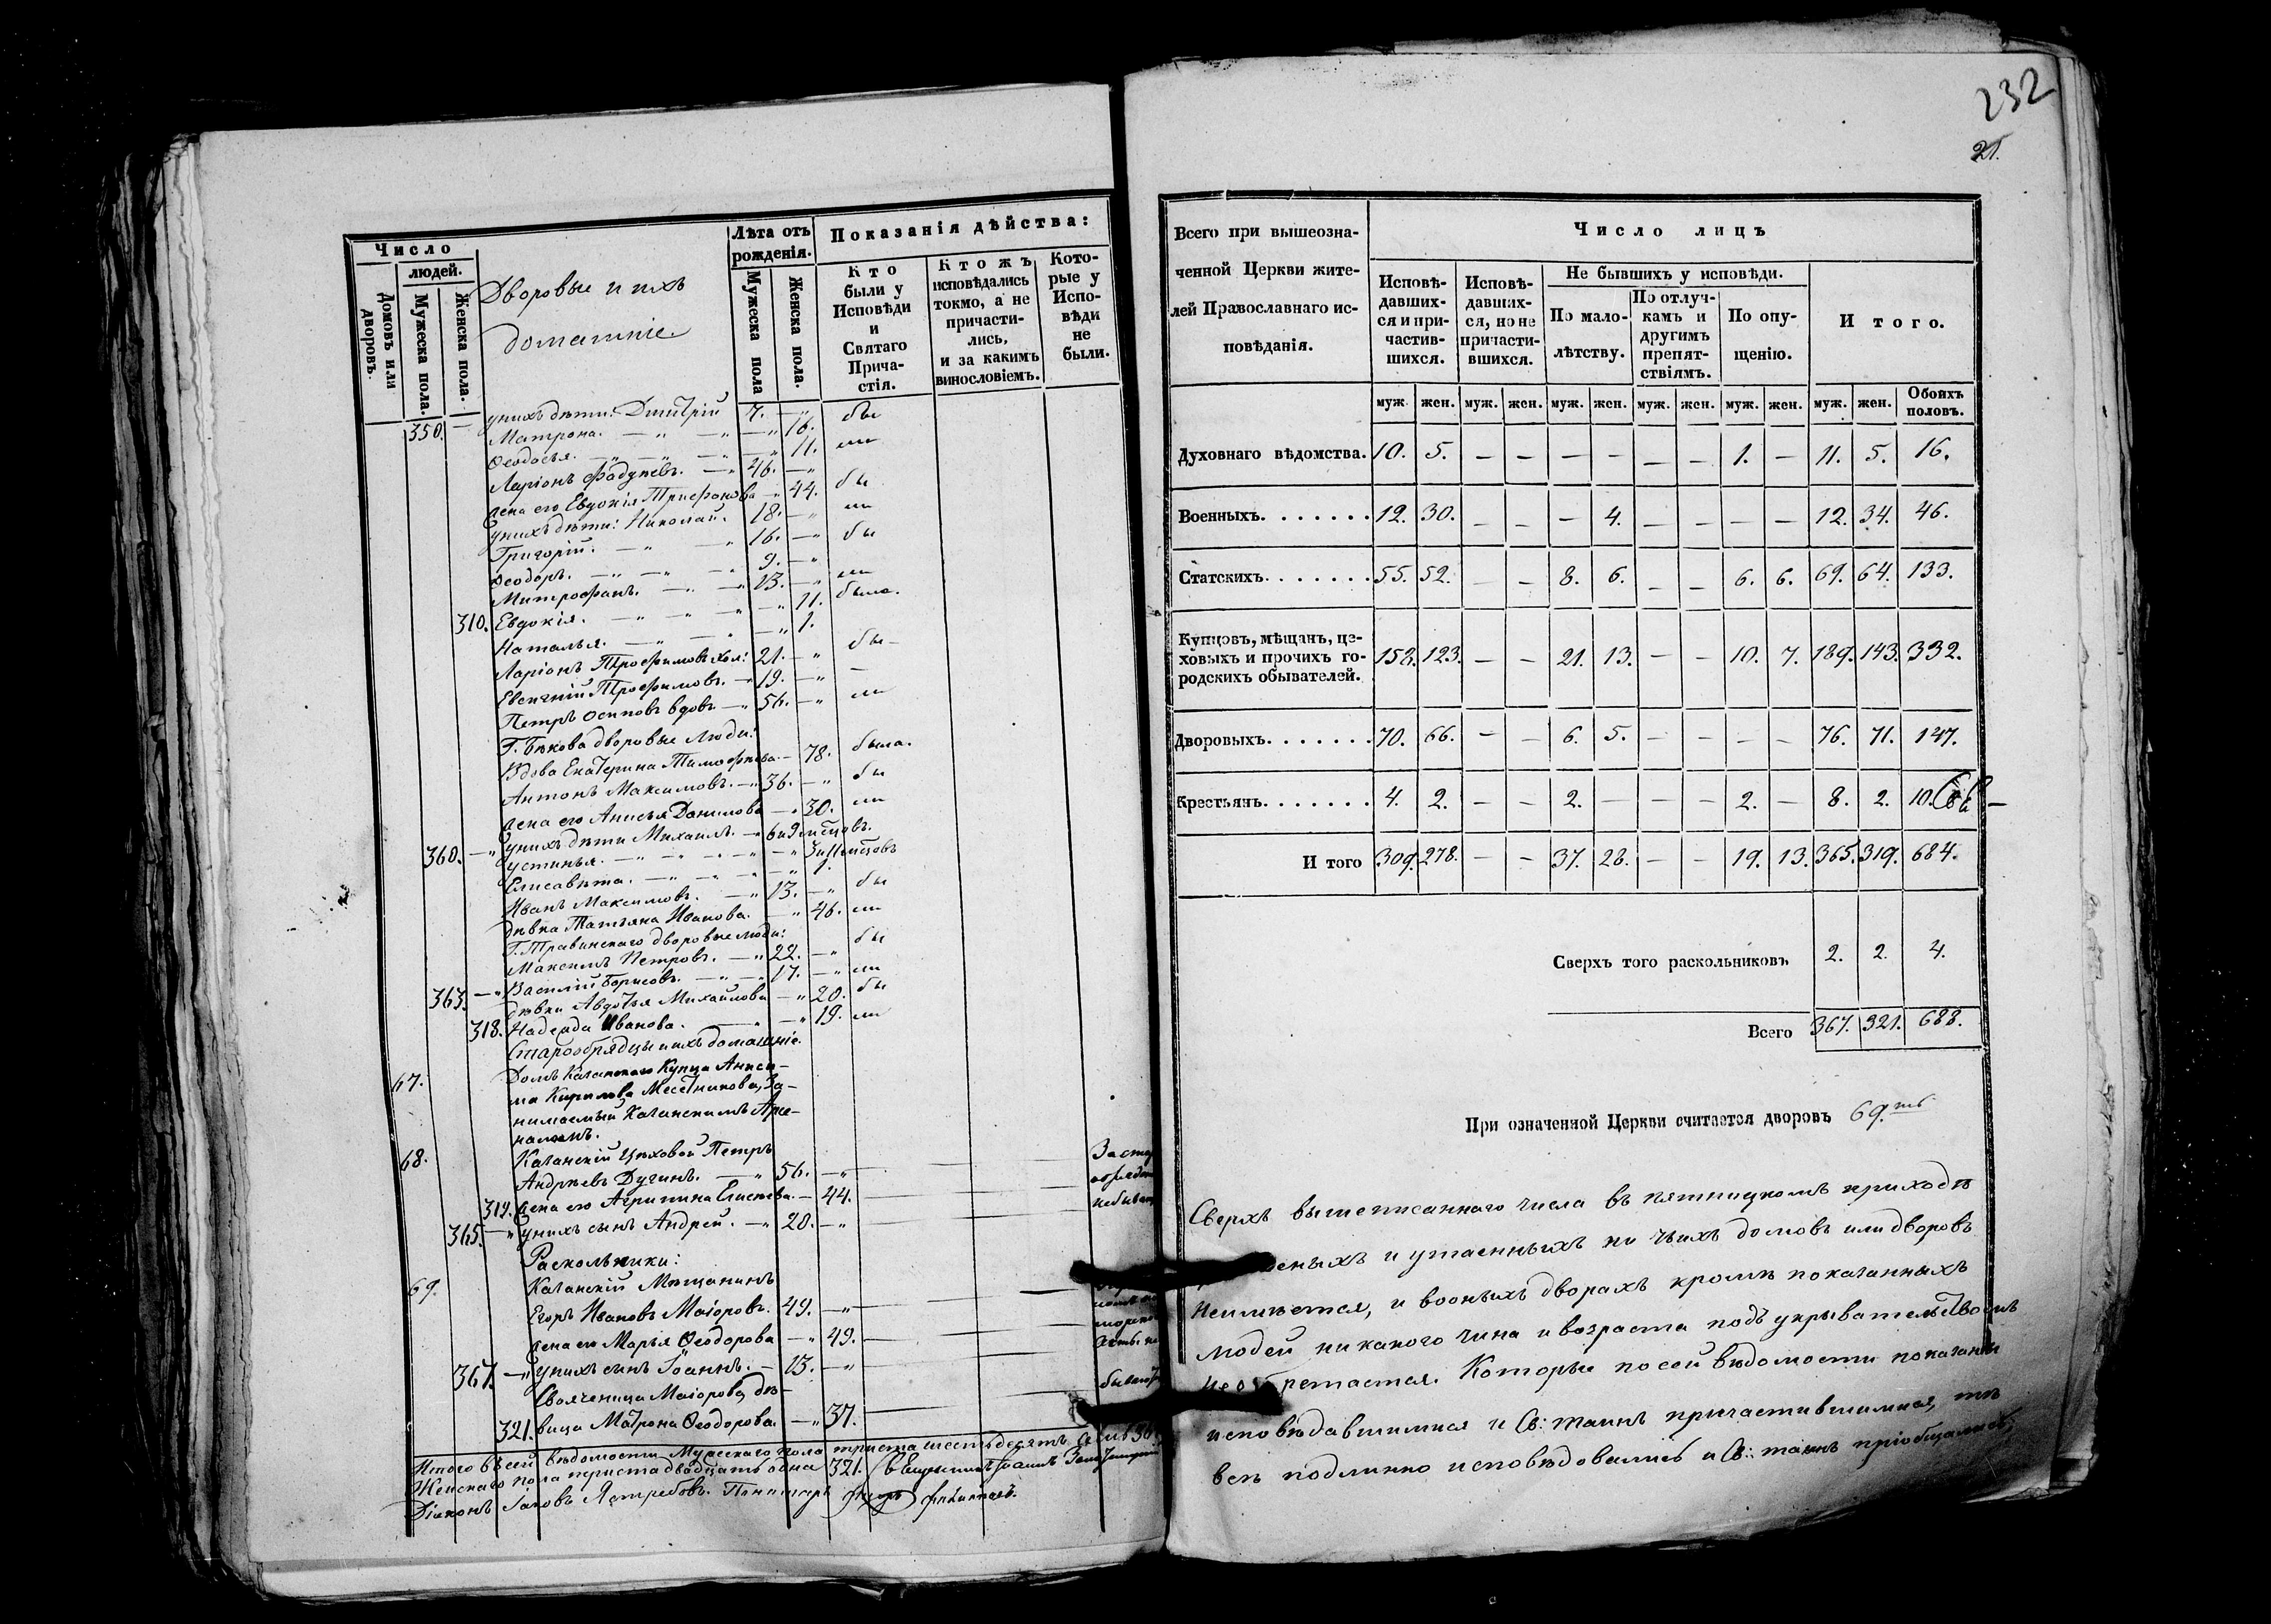 Число
людей.
Домовъ или дворовъ.
Мужеска пола.
Женска пола.
Дворовые и ихъ
домашніе
Лѣта отъ рожденія.
Мужеска пола
Женска пола.
Показанія дѣйства:
Кто были у Исповѣди и Святаго Прича-стія.
Кто жъ исповѣдались токмо, а не причасти-лись, и за какимъ винословіемъ.
Кото-рые у Испо-вѣди не были.
350. — у нихъ дѣти: Дмитрій 7. — " бы
Матрона. — " — " — " 16.
Ѳеодосья. — " — " — " 11. ли
Ларіонъ Фадѣевъ. — " 46. — "
жена его Евдокія Трифонова — " 44. бы
у нихъ дѣти: Николай. 18. — " ли
Григорій. — " — " 16. — " бы
Ѳеодоръ. — " — " — " 9. — "
Митрофанъ. — " — " 13. — " ли
310. Евдокія. — " — " — " 11. была.
Наталья. — " — " — " 1.
Ларіонъ Трофимовъ хол: 21. — " бы —
Евгеній Трофимовъ. — " 19. — " —
Петръ Осиповъ вдовъ — " 56. — " ли
Г. Бѣкова дворовые люди:
Вдова Екатерина Тимофѣева — 78. была.
Антонъ Максимовъ. — " 36. — " бы
жена его Анисья Данилова — " 30. ли
360. — " у нихъ дѣти Михаилъ. — " 6 и 9 мѣсцовъ.
Устинья. — " — " — " — " 3 и 11 мѣсцовъ
Елисавета. — " — " — " 1.
Иванъ Максимовъ. — " 13. — " бы
дѣвка Татьяна Иванова. — " 46. ли
Г. Травинскаго дворовые люди:
Максимъ Петровъ. — " 22. — " бы
363. — " Василій Борисовъ. — " — " 17. — " ли
дѣвки Авдотья Михайлова — " 20. бы
318. Надежда Иванова. — " — " 19. ли
Старообрядцы и ихъ домашніе.
67. Домъ Казанскаго Купца Аниси-
ма Кирилова Месетникова, за-
нимаемый Казанскимъ Арсе-
наломъ.
68. Казанскій Цѣховой Петръ
Андреевъ Дугинъ. — " 56. — "
319. жена его Агрипина Елисеева. — 44.
365. — " у нихъ сынъ Андрей. — " 20. — "
Раскольники:
69. Казанскій Мѣщанинъ
Егоръ Ивановъ Маіоровъ. 49. — "
жена его Марья Ѳеодорова — " 49.
367. — " у нихъ сынъ Іоаннъ. — 13. — "
Свояченица Маіорова, дѣ-
321. вица Матрона Ѳеодорова. — " 37.
Итого въ сей вѣдомости Мужескаго пола триста шестьдесятъ семь
Женскаго пола триста двадцать одна 321. Священникъ Іоаннъ
Діаконъ Іаковъ Ястребовъ. Пономарь
232
21.
Всего при вышеозна-ченной Церкви жите-лей Православнаго ис-повѣданія.
Число лицъ
Исповѣ-давших-ся и при-частив-шихся.
Исповѣ-давших-ся, но не причасти-вшихся.
Не бывшихъ у исповѣди.
По мало-лѣтству.
По отлуч-камъ и другимъ препят-ствіямъ.
По опу-щенію.
Итого.
муж. жен. муж. жен. муж. жен. муж. жен. муж. жен. муж. жен. Обоихъ половъ.
Духовнаго вѣдомства. 10. 5. — — — — — — 1. — 11. 5. 16.
Военныхъ. . . . . . . 12. 30. — — — 4. — — — — 12. 34. 46.
Статскихъ. . . . . . . 55. 52. — — 8. 6. — — 6. 6. 69. 64. 133.
Купцовъ, мѣщанъ, це-
ховыхъ и прочихъ го- 158. 123. — — 21. 13. — — 10. 7. 189. 143. 332.
родскихъ обывателей.
Дворовыхъ. . . . . . . 70. 66. — — 6. 5. — — — — 76. 71. 147.
Крестьянъ. . . . . . . 4. 2. — — 2. — — — 2. — 8. 2. 10.
И того 309. 278. — — 37. 28. — — 19. 13. 365. 319. 684.
Сверхъ того раскольниковъ 2. 2. 4.
Всего 367. 321. 688.
При означенной Церкви считается дворовъ 69.ть
Сверхъ вышеписаннаго числа въ Пятницкомъ приходѣ
и утаенныхъ ни чьихъ домовъ или дворовъ
неимѣется, и въ оныхъ дворахъ кромѣ показанныхъ
людей никакого чина и возраста подъ укрывательствомъ
необрѣтается. Которые по сей вѣдомости показаны
исповѣдавшимися и Св: таинъ причастившимися, тѣ
всѣ подлинно исповѣдовались и Св: таинъ пріобщались,